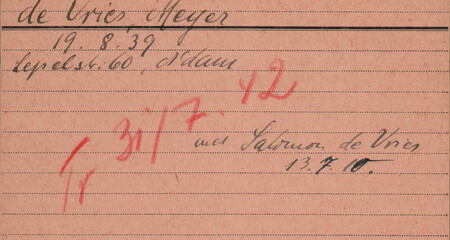 de Vries, Meyer
19.8.39
Lepelstr. 60, A'dam
Tr 31/7.42
met Salomon de Vries
13.7.10.